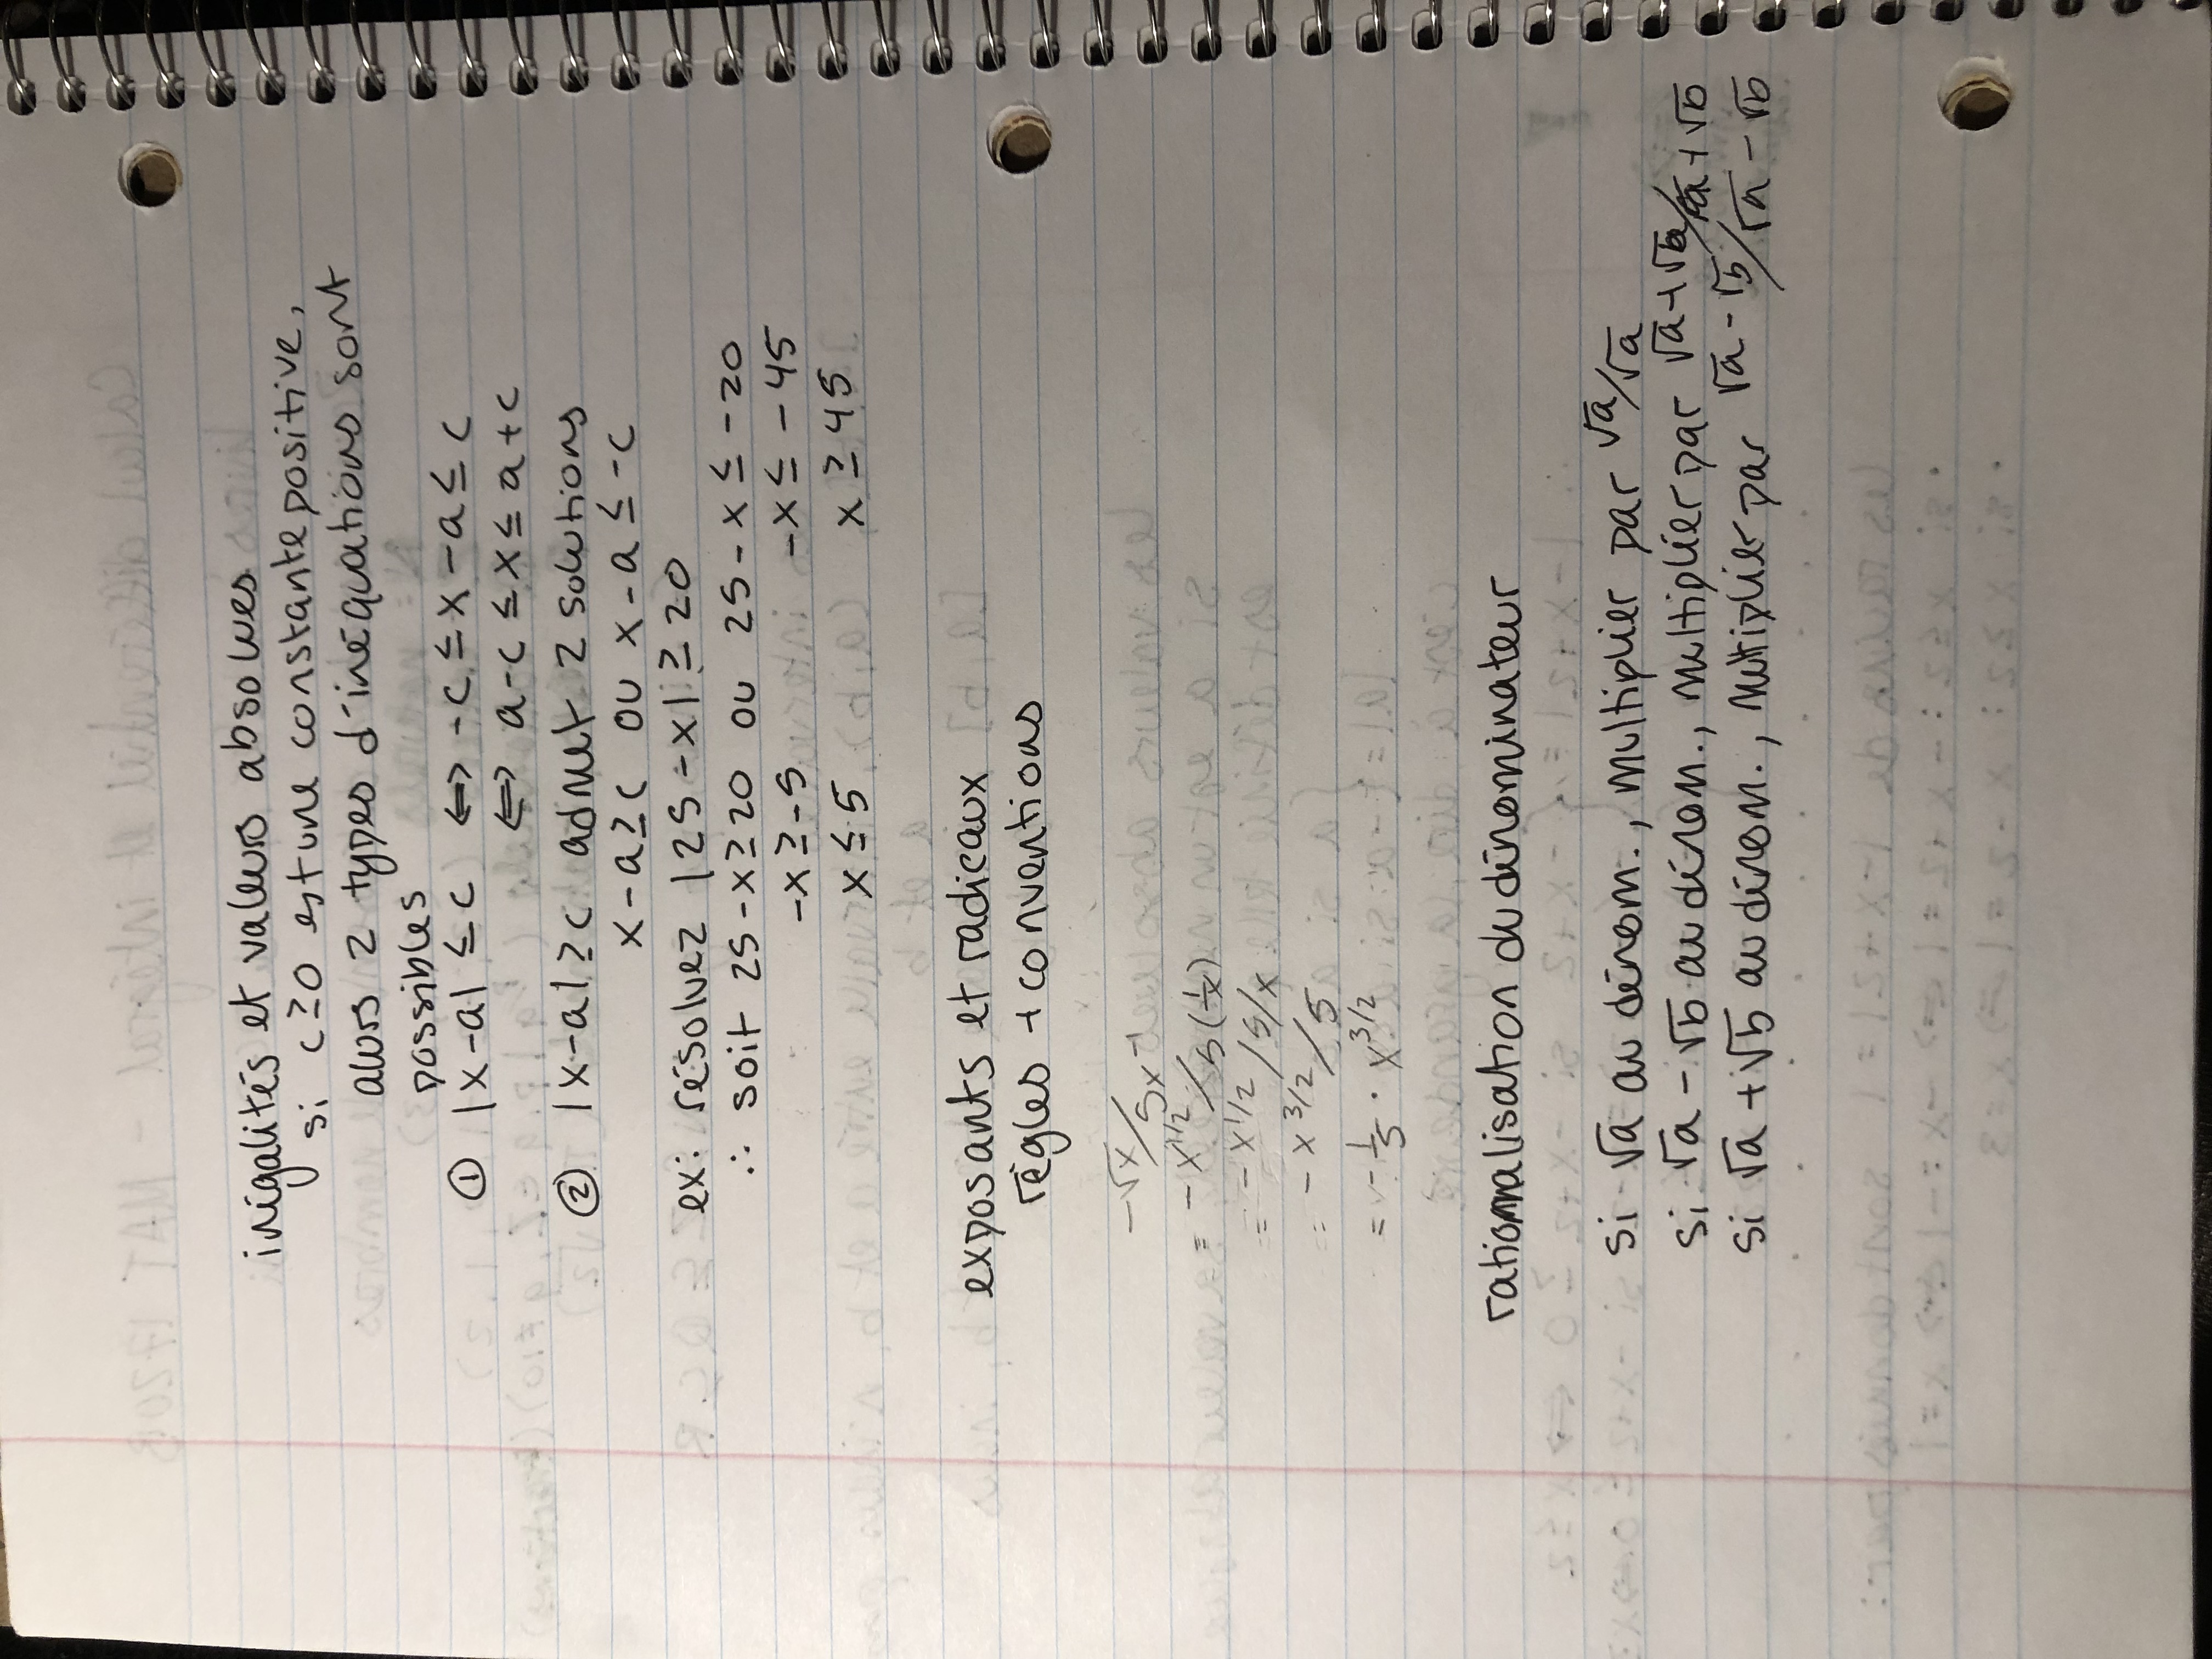 inégalités et valeurs absolues
si c ≥ 0 est une constante positive,
alors 2 types d'inéquations sont
possibles
① |x-a| ≤ c ⟺ -c ≤ x-a ≤ c
⟺ a-c ≤ x ≤ a+c
② |x-a| ≥ c admet 2 solutions
x-a ≥ c ou x-a ≤ -c
ex: résolvez |25-x| ≥ 20
∴ soit 25-x ≥ 20 ou 25-x ≤ -20
-x ≥ -5 -x ≤ -45
x ≤ 5 x ≥ 45
exposants et radicaux
règles + conventions
-√x/5x⁻¹
= -x^1/2/5(1/x)
= -x^1/2/5/x
= -x^3/2/5
= -1/5 · x^3/2
rationnalisation du dénominateur
si √a au dénom., multiplier par √a/√a
si √a-√b au dénom., multiplier par √a+√b/√a+√b
si √a+√b au dénom., multiplier par √a-√b/√a-√b